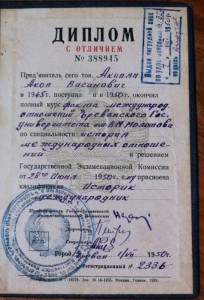 ДИПЛОМ
С ОТЛИЧИЕМ
№ 388945
Выдан нагрудный знак
Пред'явитель сего тов. Акопян
Акоп Васакович
в 1945 г. поступил и в 1950 г. окончил
полный курс фак-та международ.
отношений Ереванского Гос.
университета им. В.М. Молотова
по специальности история
международных отноше-
ний и решением
Государственной Экзаменационной Комиссии
от 28 июня 1950 г. ему присвоена
квалификация Историк
международник
Город Ереван 1950 г.
Регистрационный № 2336